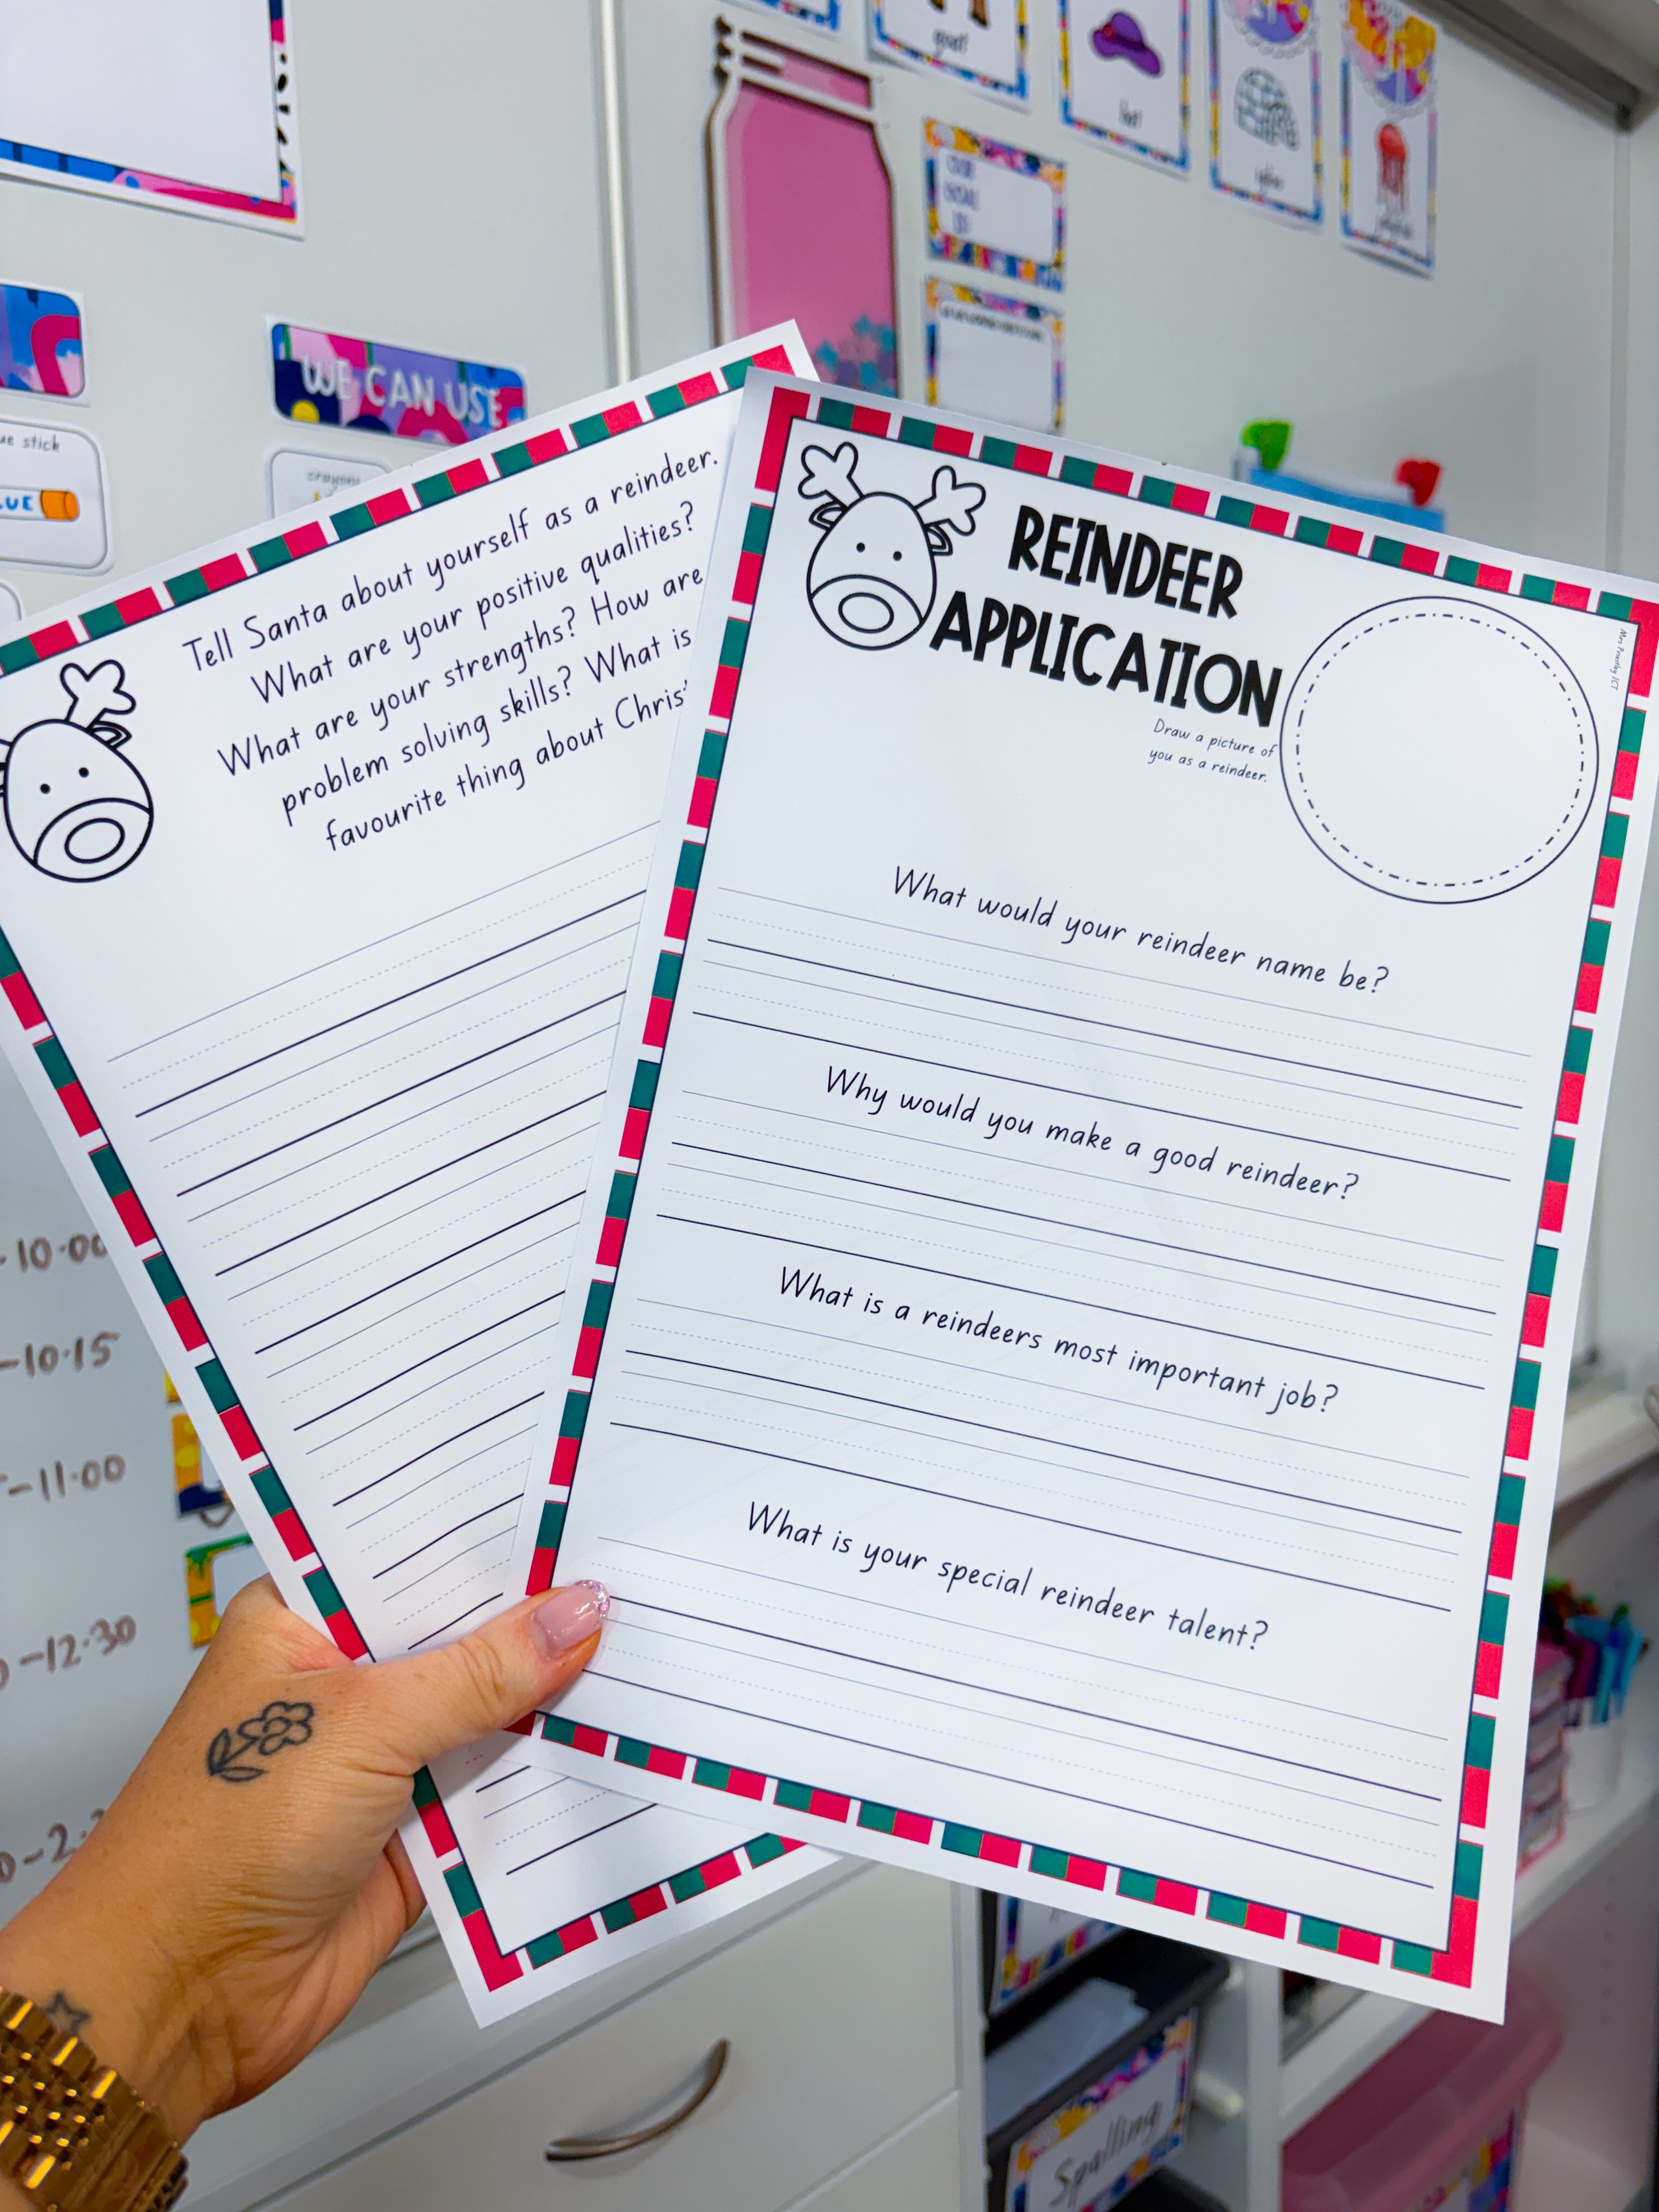 goat
hat
igloo
OUR
GOAL
IS:
WE CAN USE
ue stick
LUE
crayons
Tell Santa about yourself as a reindeer.
What are your positive qualities?
What are your strengths? How are
problem solving skills? What is
favourite thing about Chris
REINDEER
APPLICATION
Draw a picture of
you as a reindeer.
What would your reindeer name be?
Why would you make a good reindeer?
What is a reindeers most important job?
What is your special reindeer talent?
-10·00
-10·15
-11·00
-12·30
-2·
Spelling